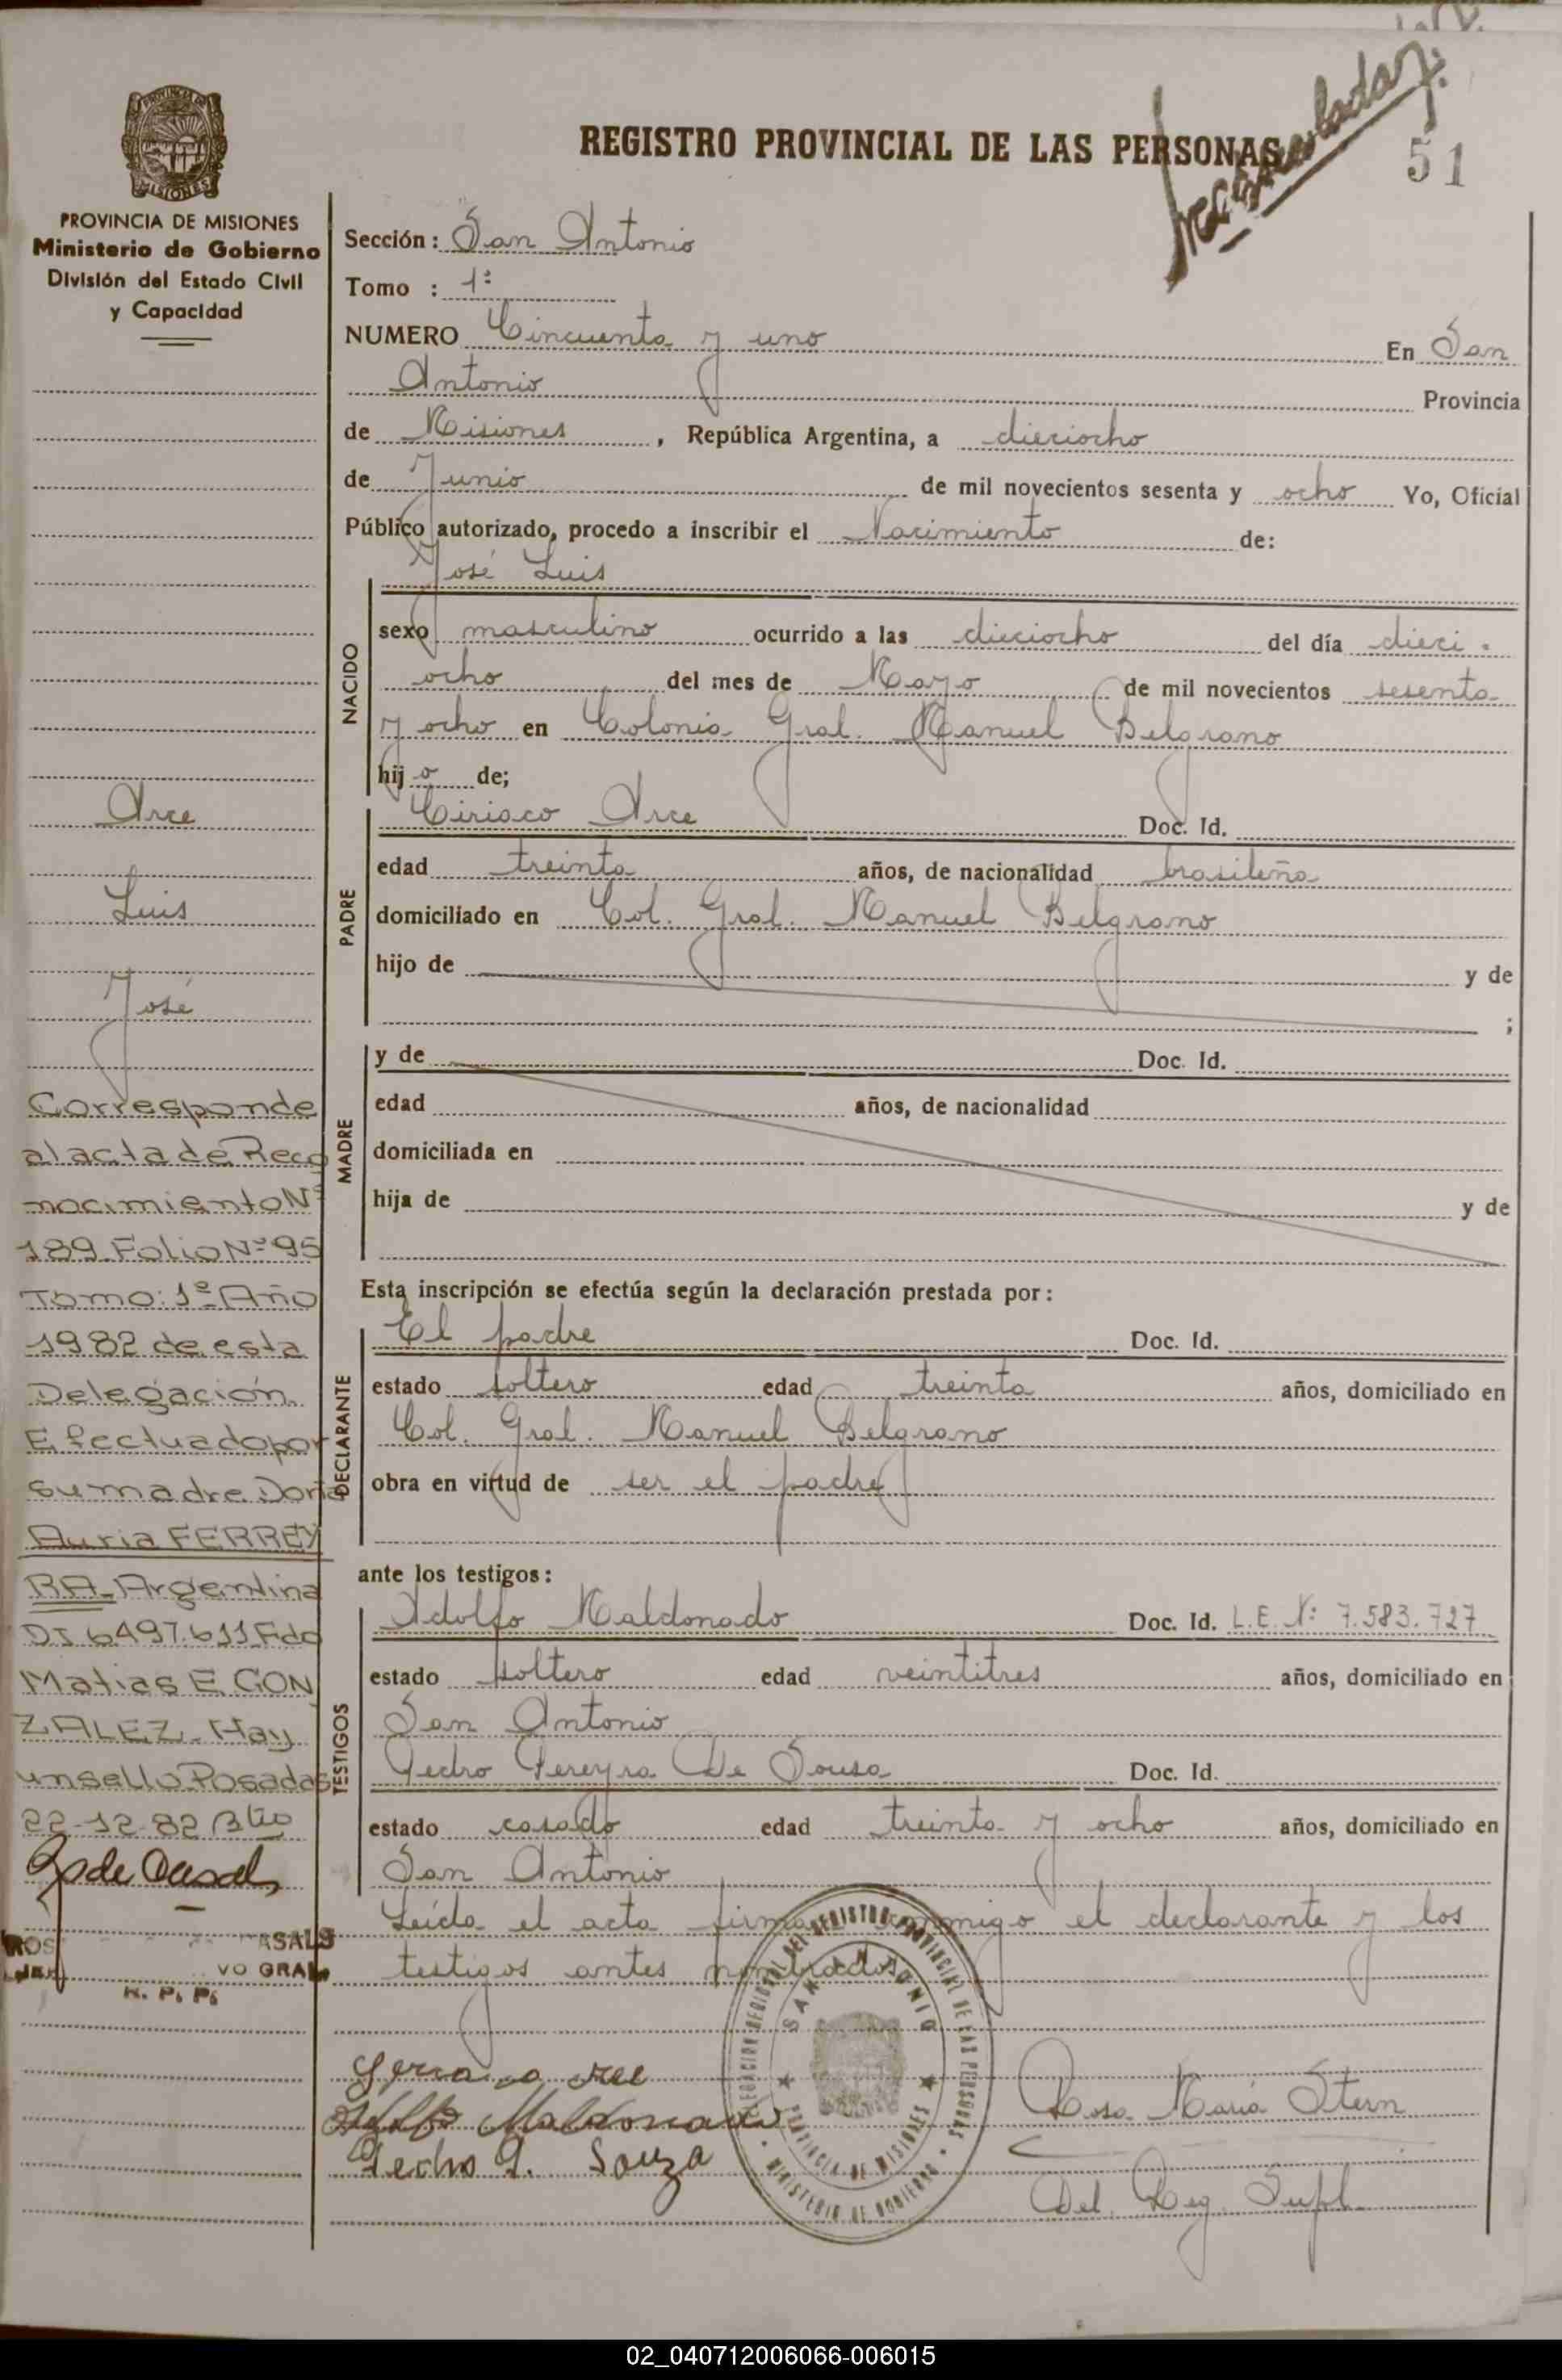 REGISTRO PROVINCIAL DE LAS PERSONAS
51
PROVINCIA DE MISIONES
Ministerio de Gobierno
División del Estado Civil
y Capacidad
Arce
Luis
José
Corresponde
al acta de Reco
nocimiento Nº
189 Folio Nº 95
Tomo: 1º Año
1982 de esta
Delegación
Efectuado por
su madre Doña
Auria FERREY
RA. Argentina
DI 6497.611 Fdo
Matias E. GON
ZALEZ. Hay
un sello Posadas
22-12-82
VO GRAL
R. P. P.
Sección: San Antonio
Tomo : 1º
NUMERO Cincuenta y uno En San
Antonio Provincia
de Misiones , República Argentina, a dieciocho
de Junio de mil novecientos sesenta y ocho Yo, Oficial
Público autorizado, procedo a inscribir el Nacimiento de:
José Luis
NACIDO
sexo masculino ocurrido a las dieciocho del día dieci-
ocho del mes de Mayo de mil novecientos sesenta
y ocho en Colonia Gral. Manuel Belgrano
hijo de;
PADRE
Ciriaco Arce Doc. Id.
edad treinta años, de nacionalidad brasileña
domiciliado en Col. Gral. Manuel Belgrano
hijo de y de
;
MADRE
y de Doc. Id.
edad años, de nacionalidad
domiciliada en
hija de y de
Esta inscripción se efectúa según la declaración prestada por:
DECLARANTE
El padre Doc. Id.
estado soltero edad treinta años, domiciliado en
Col. Gral. Manuel Belgrano
obra en virtud de ser el padre
ante los testigos:
TESTIGOS
Adolfo Maldonado Doc. Id. L.E. Nº 7.583.727
estado soltero edad veintitres años, domiciliado en
San Antonio
Pedro Pereyra De Sousa Doc. Id.
estado casado edad treinta y ocho años, domiciliado en
San Antonio
Leída el acta firman conmigo el declarante y los
testigos antes nombrados
Maldonado
Pedro P. Souza
SAN ANTONIO
PROVINCIA DE MISIONES
MINISTERIO DE GOBIERNO
Rosa María Stern
Del. Reg. Supl.
02_040712006066-006015